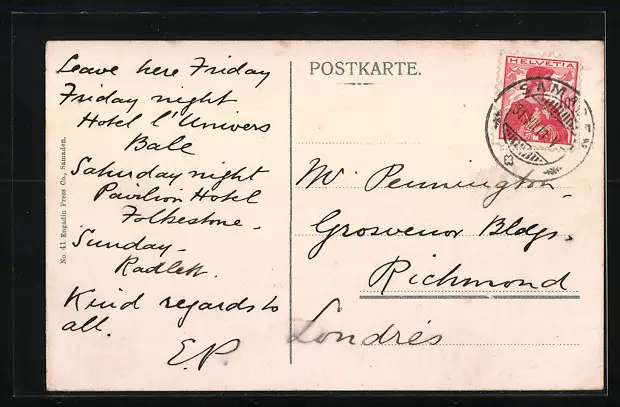 Leave here Friday
Friday night
Hotel l'Univers
Bale
Saturday night
Pavilion Hotel
Folkestone -
Sunday -
Radlett.
Kind regards to
all.
E.P.
No. 41 Engadin Press Co., Samaden.
POSTKARTE.
HELVETIA
Mr. Pennington -
Grosvenor Bldgs.
Richmond
Londrés